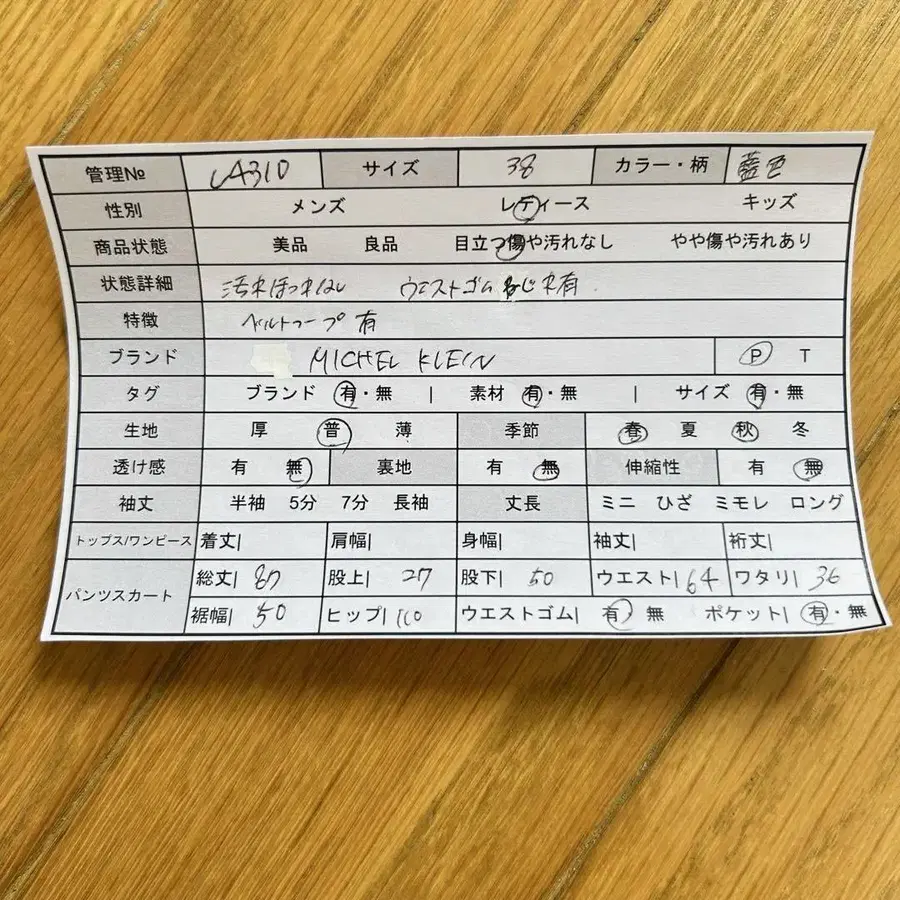 管理№ LA310 サイズ 38 カラー・柄 藍色
性別 メンズ レディース キッズ
商品状態 美品 良品 目立つ傷や汚れなし やや傷や汚れあり
状態詳細 汚れほつれなし ウエストゴムねじれ有
特徴 ベルトループ有
ブランド MICHEL KLEIN P T
タグ ブランド 有・無 | 素材 有・無 | サイズ 有・無
生地 厚 普 薄 季節 春 夏 秋 冬
透け感 有 無 裏地 有 無 伸縮性 有 無
袖丈 半袖 5分 7分 長袖 丈長 ミニ ひざ ミモレ ロング
トップス/ワンピース 着丈| 肩幅| 身幅| 袖丈| 裄丈|
パンツスカート 総丈| 87 股上| 27 股下| 50 ウエスト| 64 ワタリ| 36
裾幅| 50 ヒップ| 110 ウエストゴム| 有 無 ポケット| 有・無